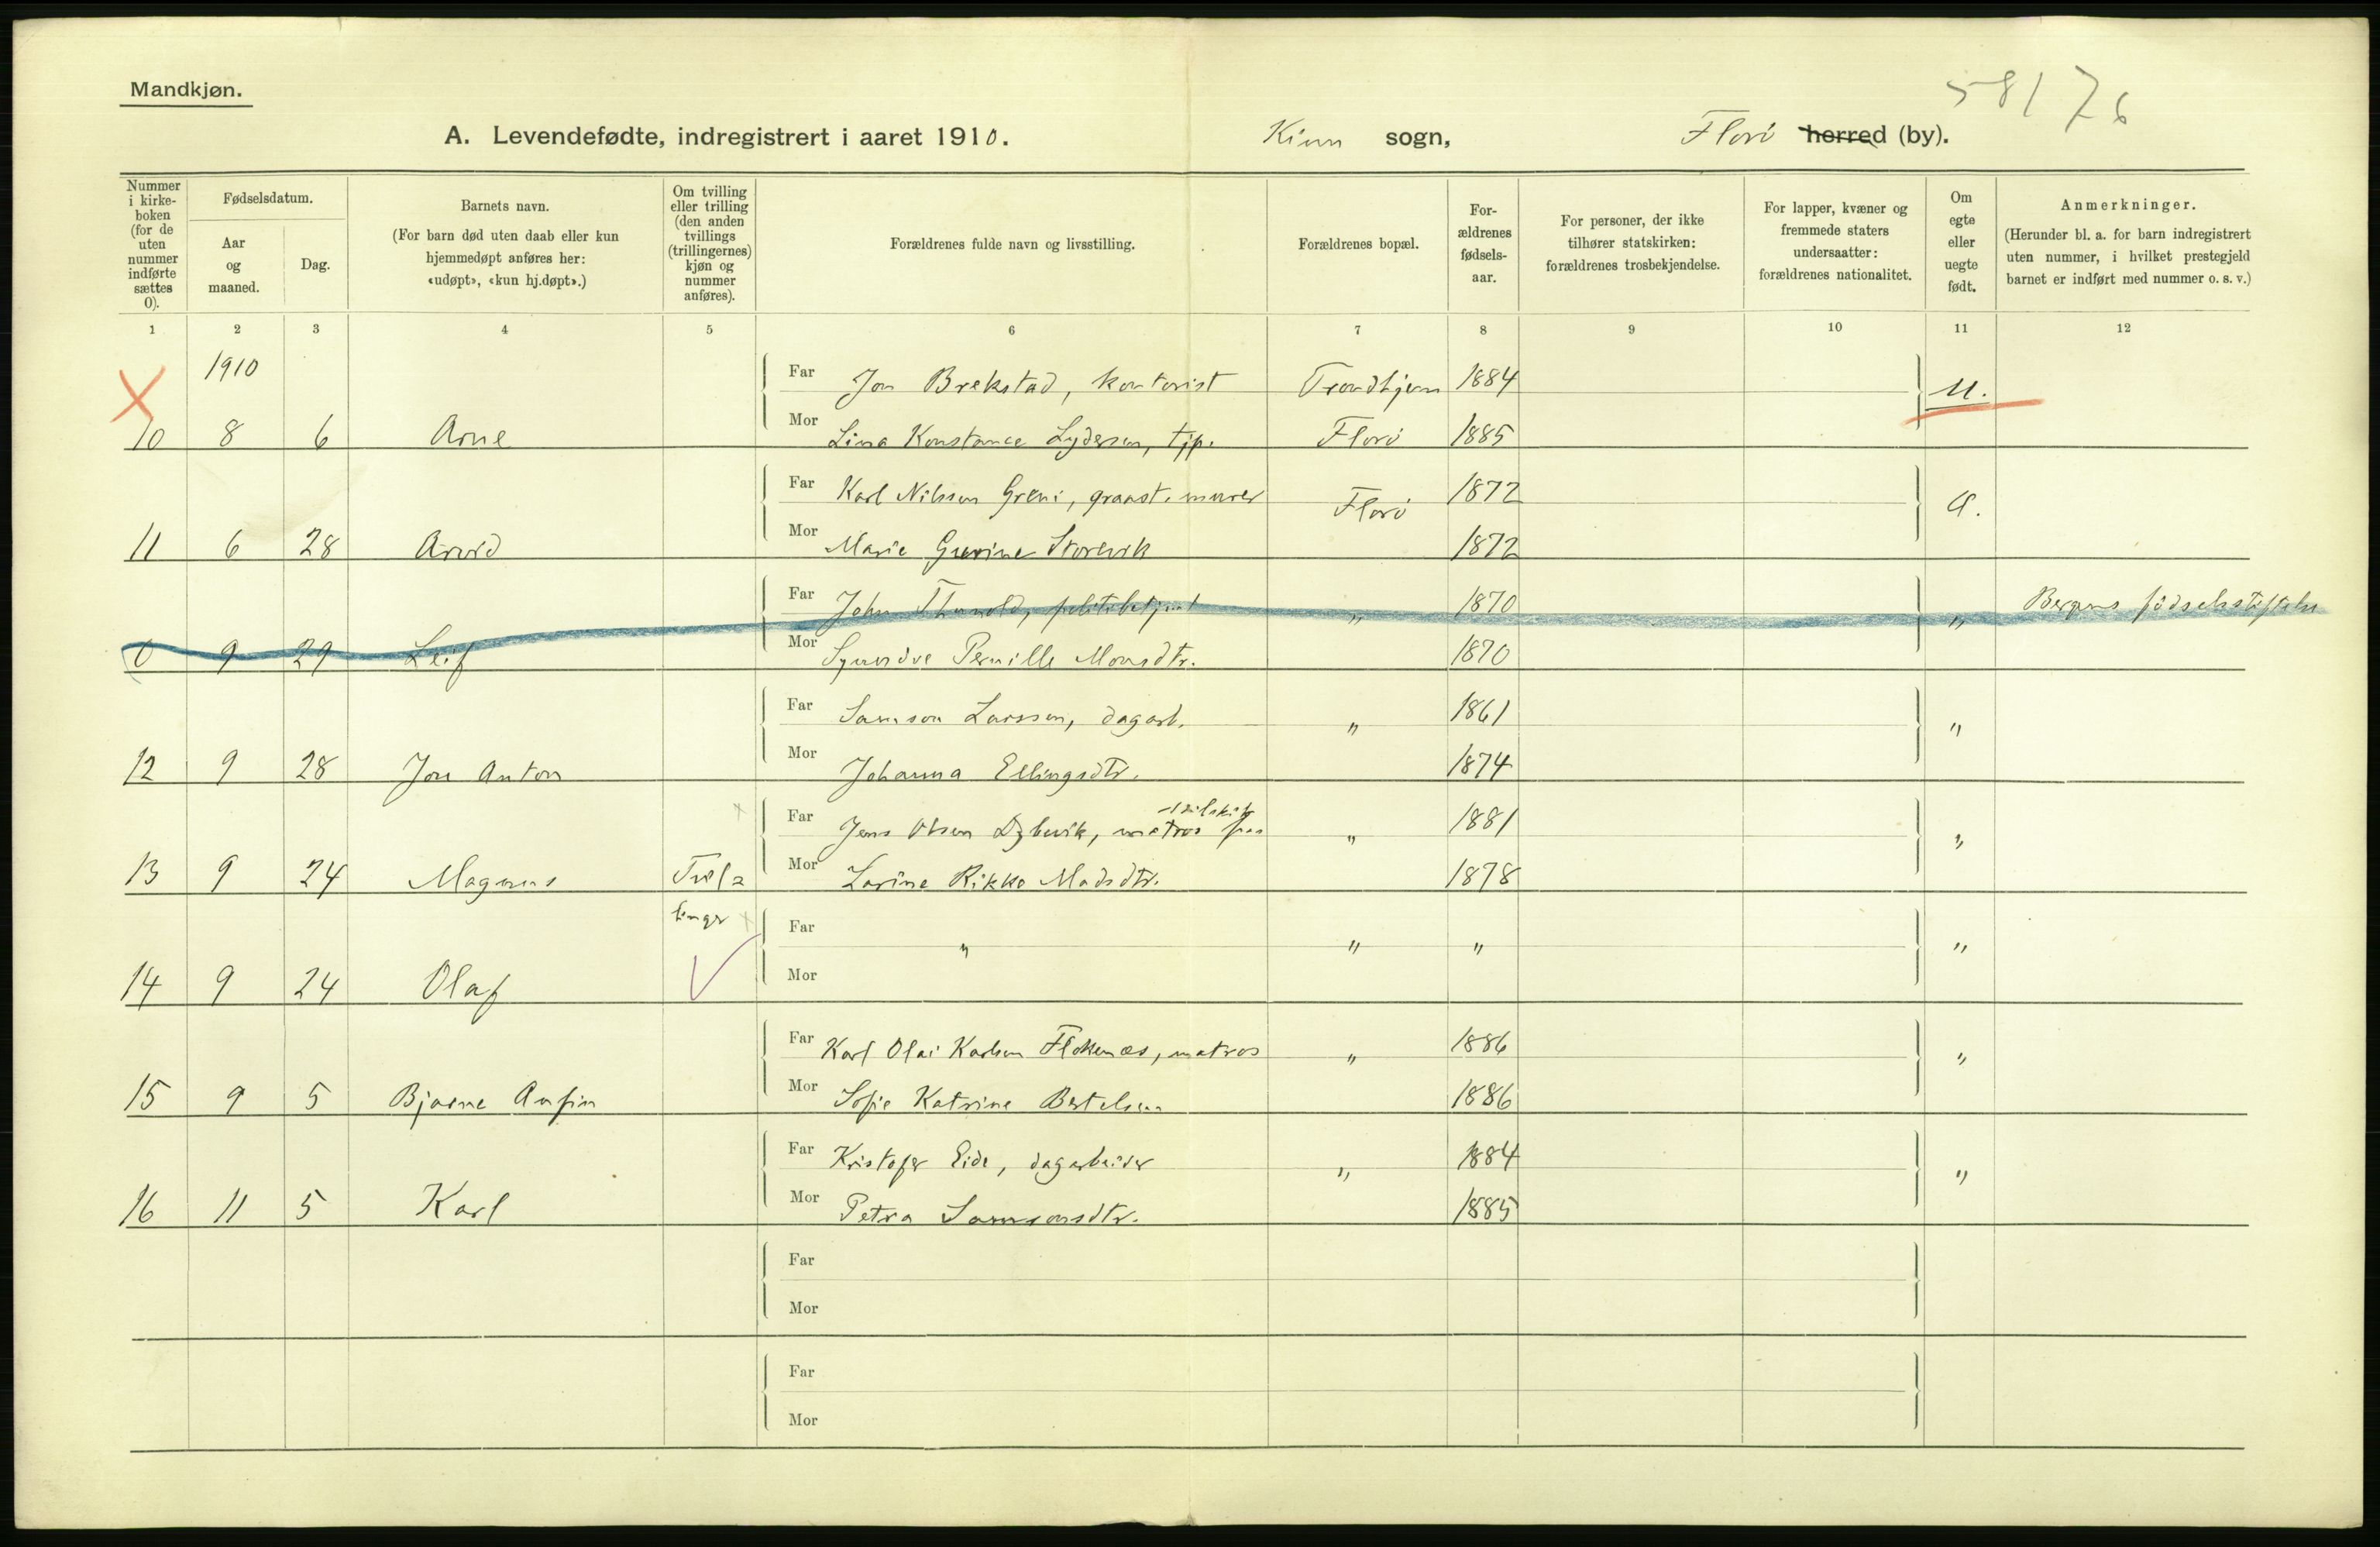 58176
Mandkjøn.
A. Levendefødte, indregistrert i aaret 1910. Kinn sogn, Florø herred (by).
Nummer i kirke-boken (for de uten nummer indførte sættes 0).
Fødselsdatum.
Aar og maaned.
Dag.
Barnets navn.
(For barn død uten daab eller kun hjemmedøpt anføres her: «udøpt», «kun hj.døpt».)
Om tvilling eller trilling (den anden tvillings (trillingernes) kjøn og nummer anføres).
Forældrenes fulde navn og livsstilling.
Forældrenes bopæl.
For-ældrenes fødsels-aar.
For personer, der ikke tilhører statskirken: forældrenes trosbekjendelse.
For lapper, kvæner og fremmede staters undersaatter: forældrenes nationalitet.
Om egte eller uegte født.
Anmerkninger.
(Herunder bl. a. for barn indregistrert uten nummer, i hvilket prestegjeld barnet er indført med nummer o. s. v.)
1 2 3 4 5 6 7 8 9 10 11 12
1910
Far Jon Brekstad, kontorist Trondhjem 1884 u.
10 8 6 Arne Mor Lina Konstance Lydersen, tjp. Florø 1885
Far Karl Nilssen Greni, graast. murer Florø 1872 a.
11 6 28 Arvid Mor Marie Gurine Storevik 1872
Far John Thunold, politibetjent " 1870 " Bergens fødselsstiftelse
0 9 29 Leif Mor Synneve Pernille Monsdtr. 1870
Far Samson Larssen, dagarb. " 1861 "
12 9 28 Jon Anton Mor Johanna Ellingsdtr. 1874
Far Jens Olsen Dybevik, matros paa seilskib " 1881 "
13 9 24 Magnus Mor Larine Rikke Madsdtr. 1878
linger
Far " " " "
14 9 24 Olaf Mor
Far Karl Olai Karlsen Flokenæs, matros " 1886 "
15 9 5 Bjarne Anfin Mor Sofie Katrine Bertelsen 1886
Far Kristofer Eide, dagarbeider " 1884 "
16 11 5 Karl Mor Petra Samsonsdtr. 1885
Far
Mor
Far
Mor